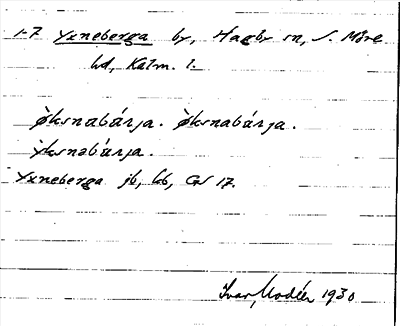 1-7 Yxneberga by, Hagby sn, S. Möre
hd, Kalm. l.
ò̀ksnabárja. ò̀ksnabárja.
ỳksnabárja.
Yxneberga jb, kb, GS 17.
Ivar Modéer 1930